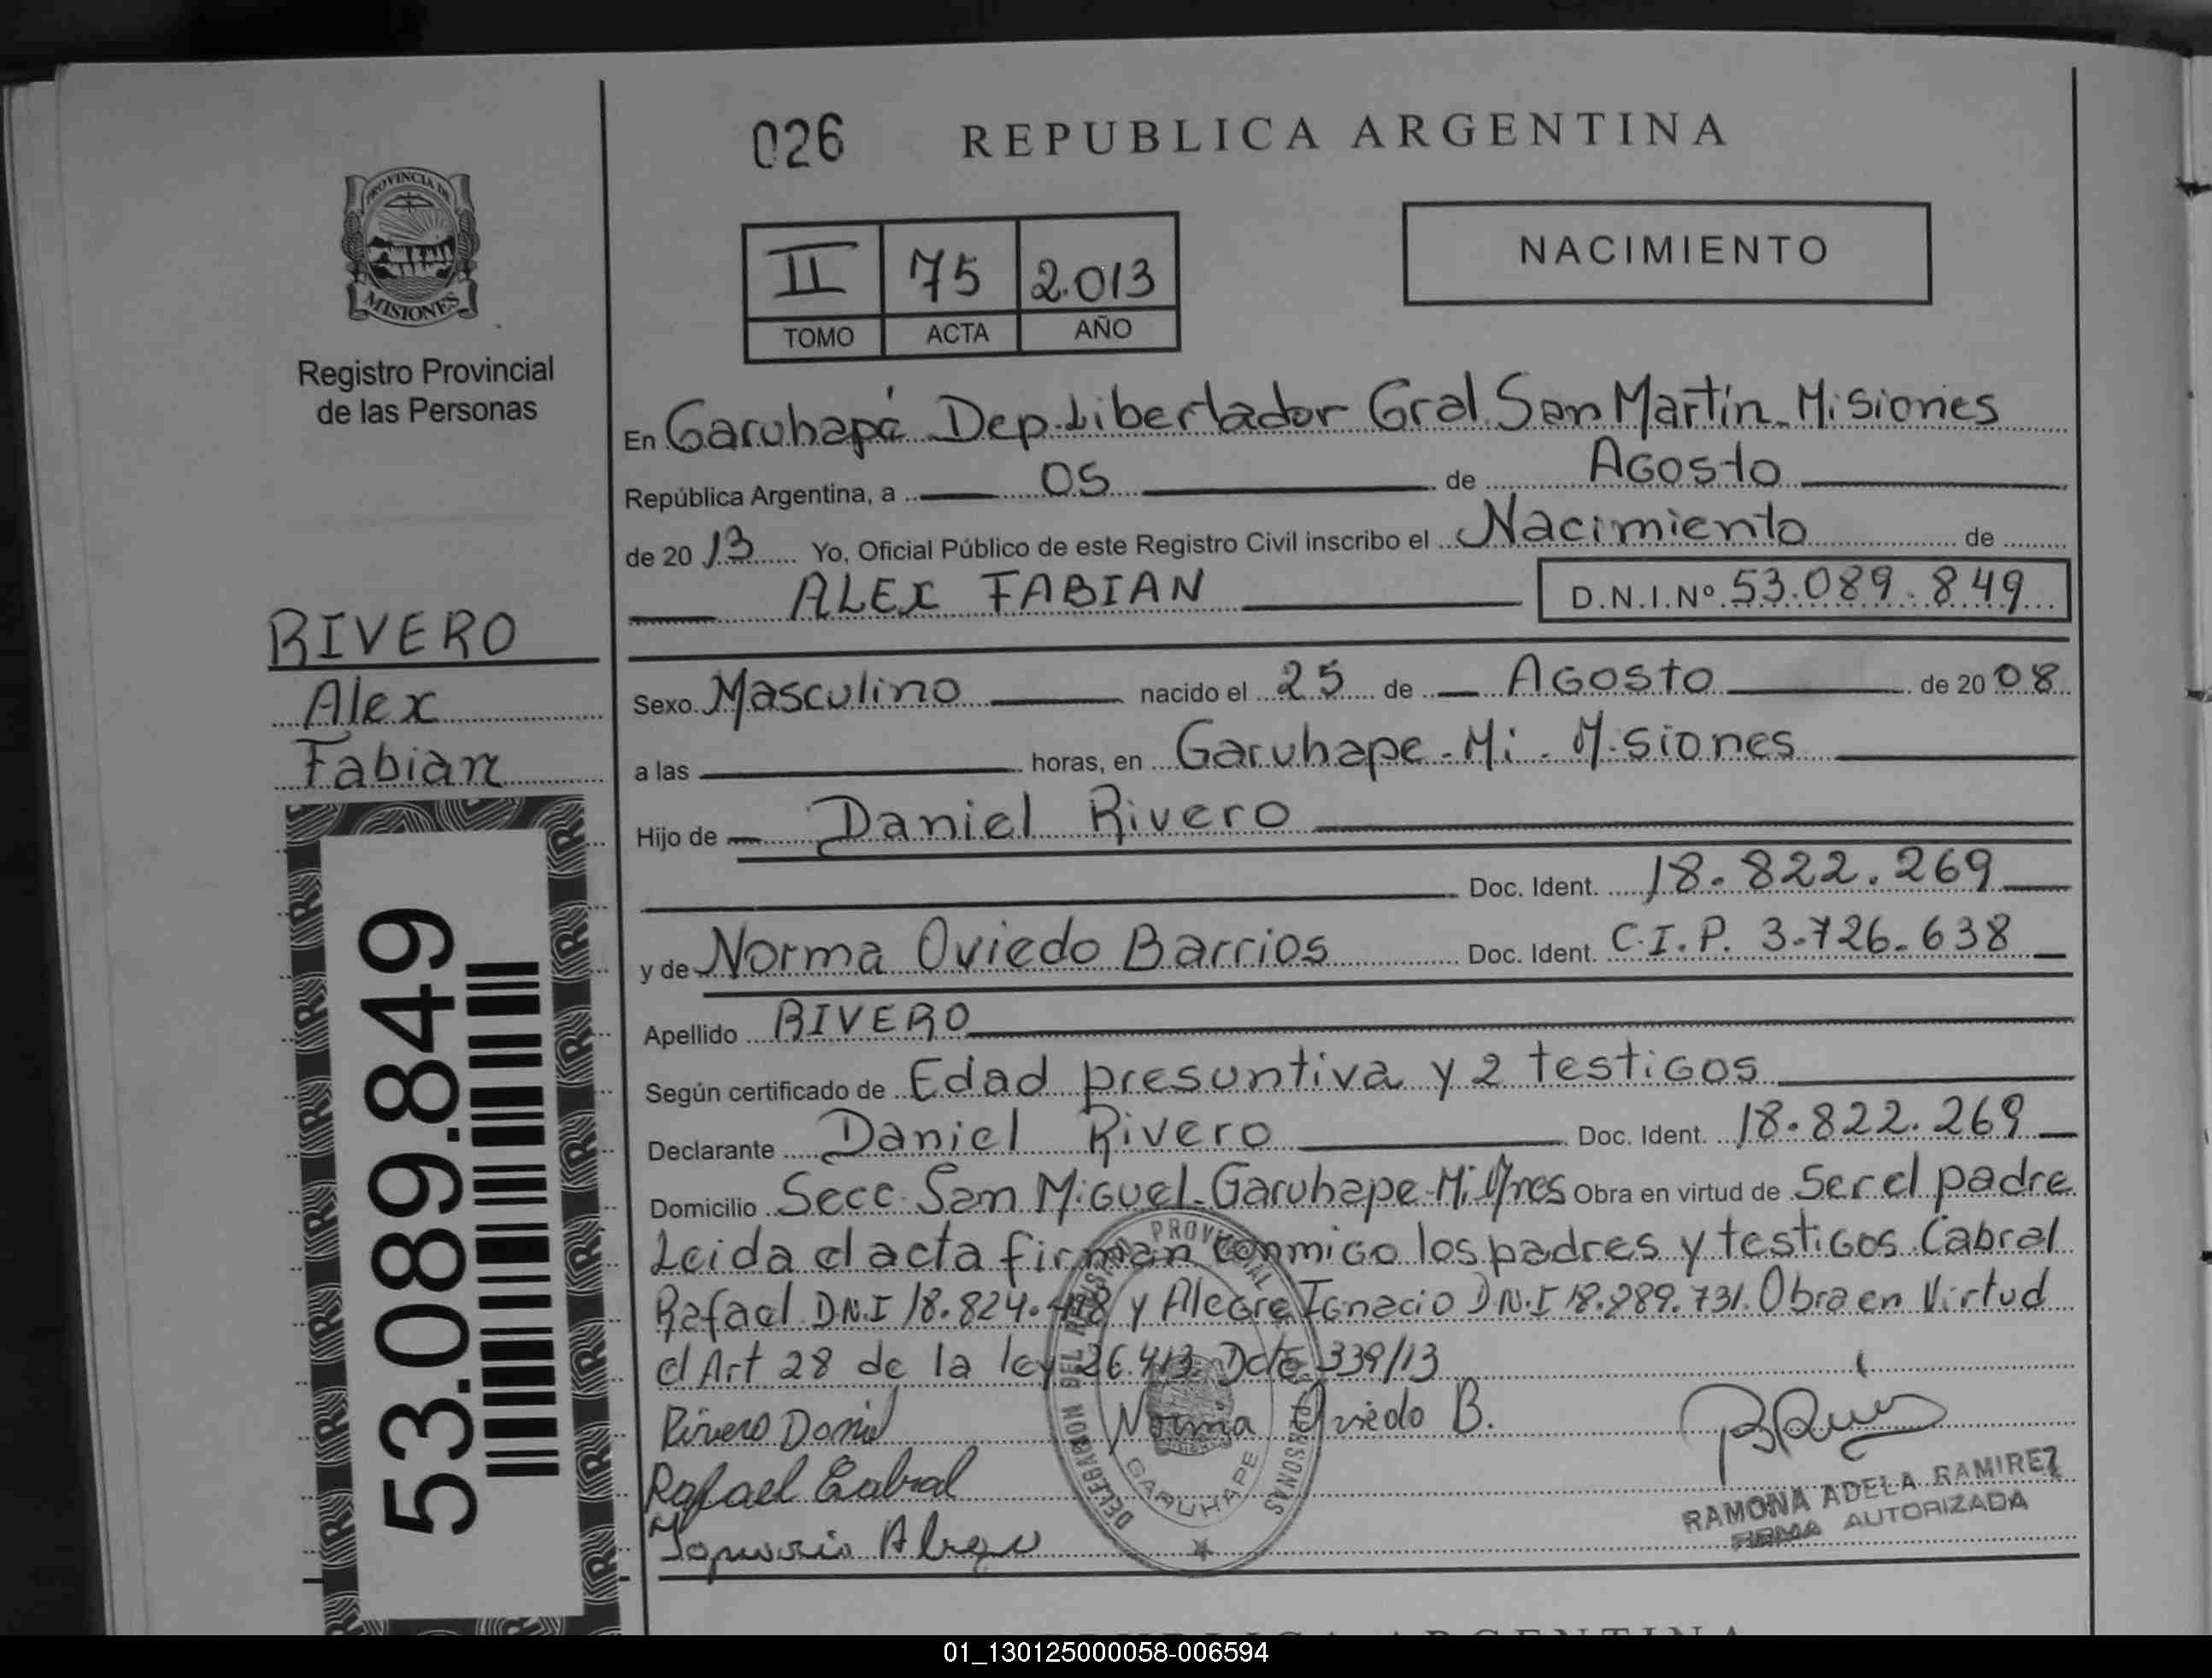 026 REPUBLICA ARGENTINA
PROVINCIA DE
MISIONES
Registro Provincial
de las Personas
II 75 2.013
TOMO ACTA AÑO
NACIMIENTO
En Garuhapé Dep. Libertador Gral. San Martín. Misiones
República Argentina, a 05 de Agosto
de 2013 Yo, Oficial Público de este Registro Civil inscribo el Nacimiento de
ALEX FABIAN D.N.I.Nº 53.089.849
RIVERO
Alex
Fabian
53.089.849
Sexo Masculino nacido el 25 de Agosto de 2008
a las horas, en Garuhape-Mi-Misiones
Hijo de Daniel Rivero
Doc. Ident. 18.822.269
y de Norma Oviedo Barrios Doc. Ident. C.I.P. 3.726.638
Apellido RIVERO
Según certificado de Edad presuntiva y 2 testigos
Declarante Daniel Rivero Doc. Ident. 18.822.269
Domicilio Secc. San Miguel-Garuhape-Mi Mnes Obra en virtud de Ser el padre
Leida el acta firman conmigo los padres y testigos Cabral
Rafael D.N.I 18.824. y Alegre Ignacio D.N.I 18.889.731. Obra en Virtud
el Art 28 de la ley 26.413 Dcto 339/13
Rivero Daniel Norma Oviedo B.
Rafael Cabral
DELEGACION DEL REGISTRO PROVINCIAL DE LAS PERSONAS
GARUHAPE
RAMONA ADELA RAMIREZ
FIRMA AUTORIZADA
REPUBLICA ARGENTINA
01_130125000058-006594